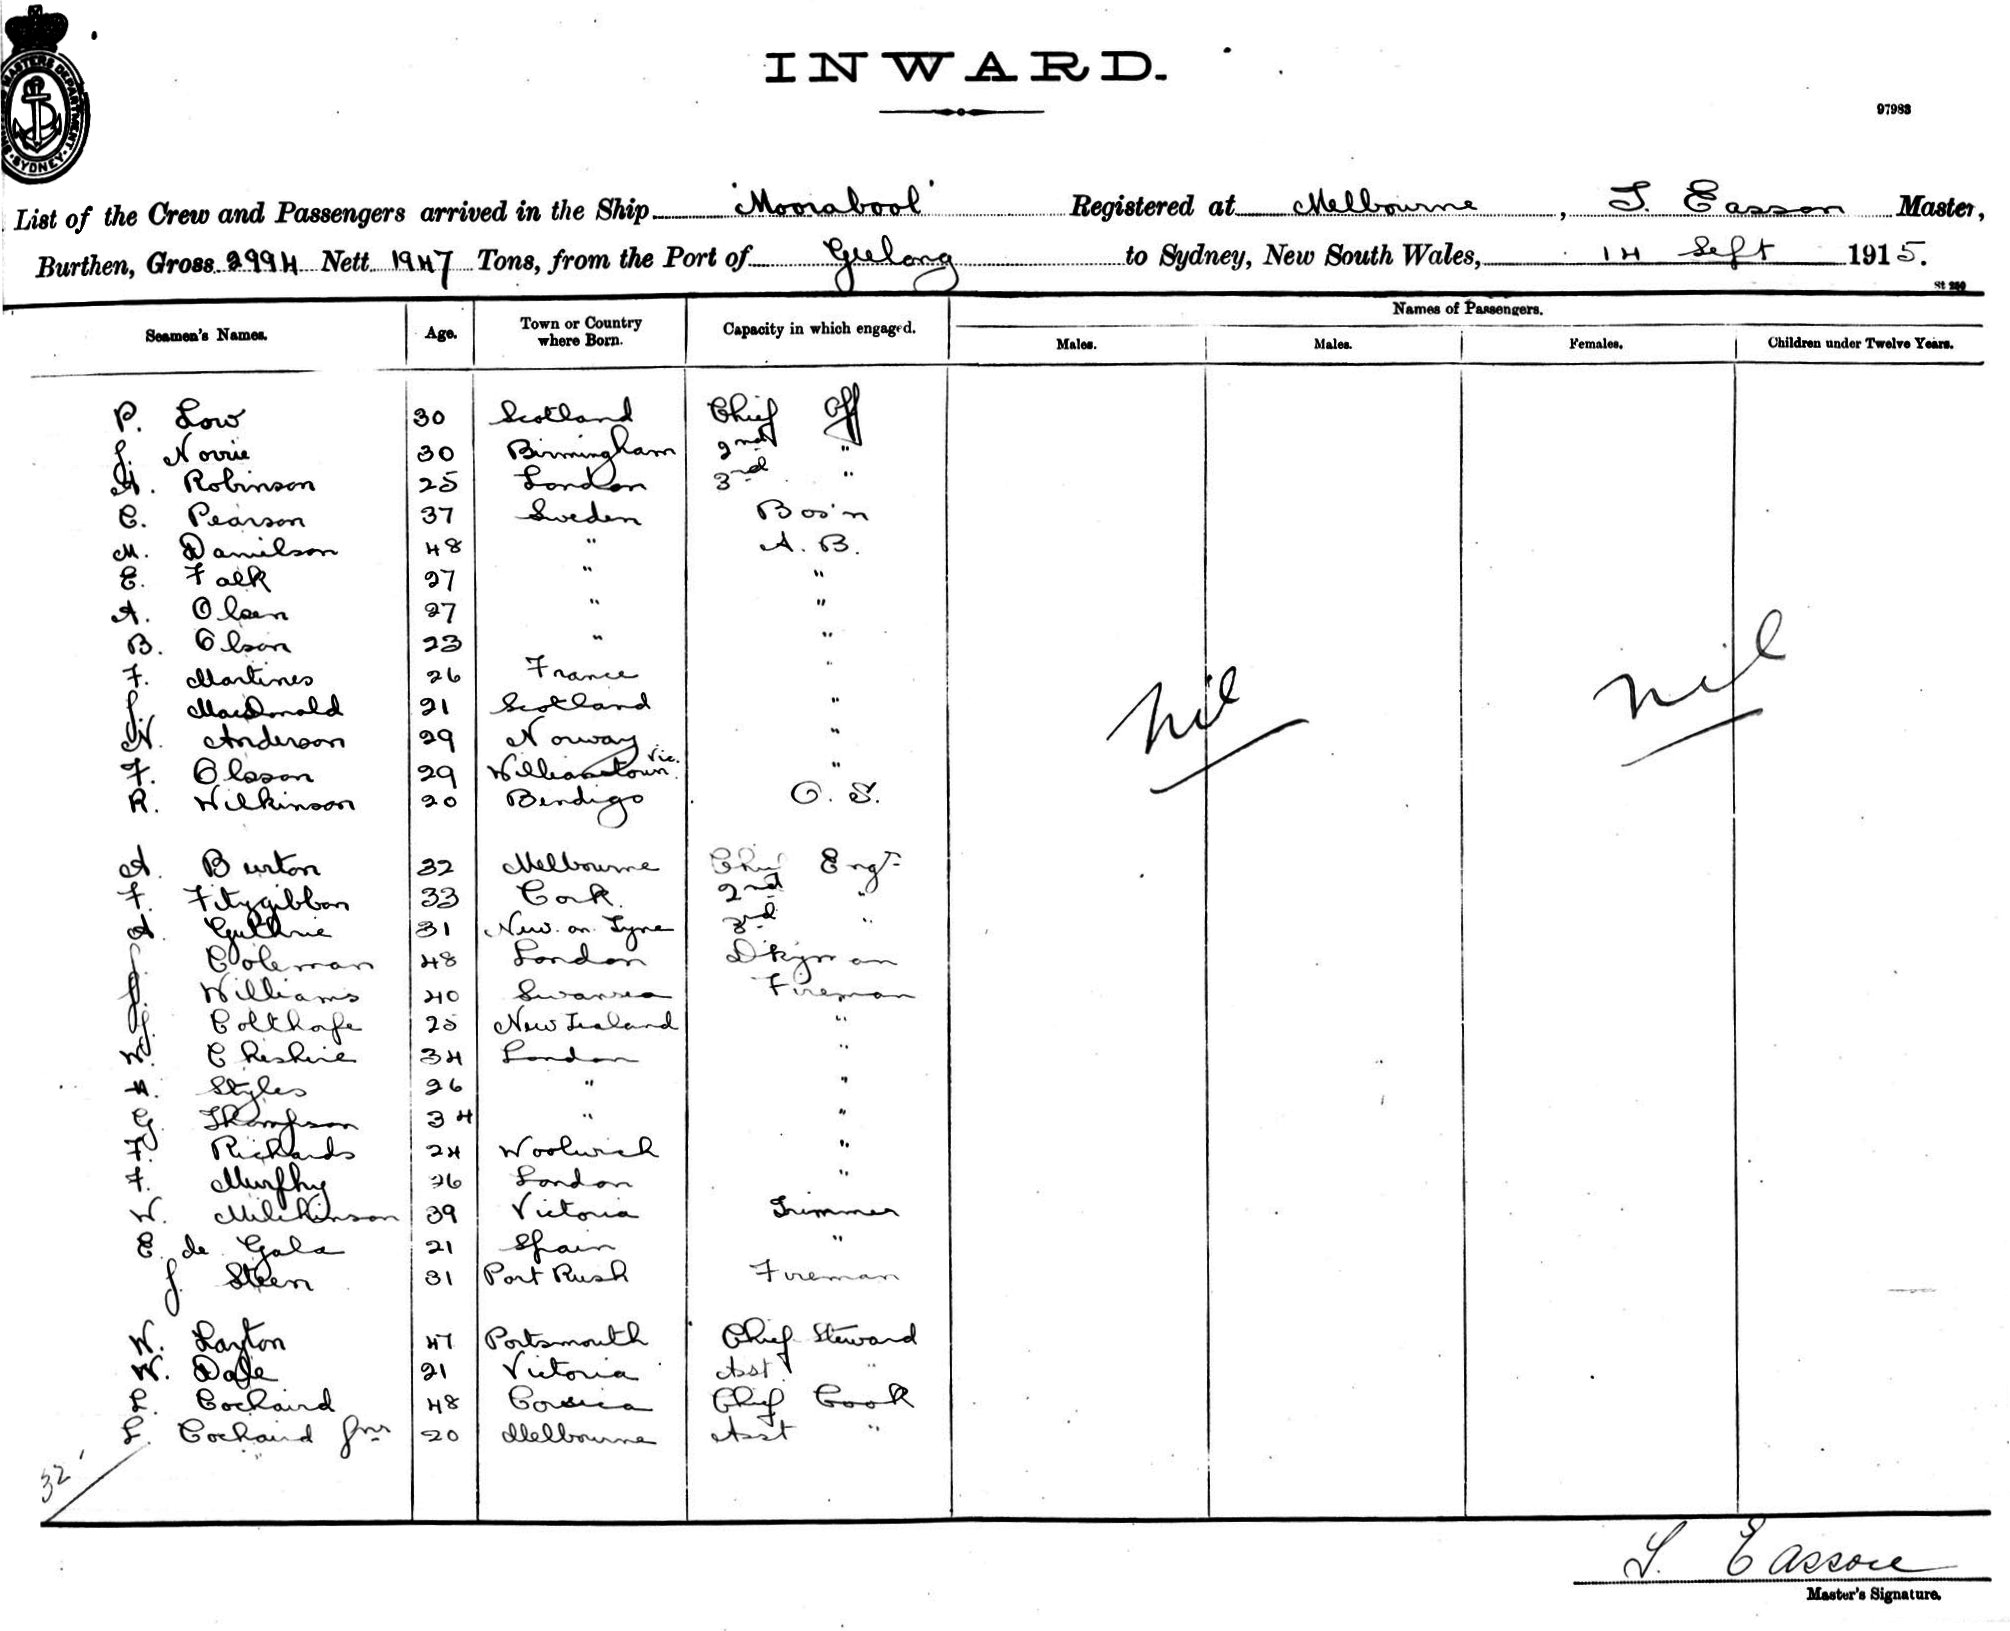 INWARD.
97983
MASTERS DEPARTMENT
SYDNEY
List of the Crew and Passengers arrived in the Ship 'Moorabool' Registered at Melbourne, T. Easson Master,
Burthen, Gross 2994 Nett 1947 Tons, from the Port of Geelong to Sydney, New South Wales, 14 Sept 1915.
St 250
Seamen's Names. Age. Town or Country where Born. Capacity in which engaged. Names of Passengers.
Males. Males. Females. Children under Twelve Years.
P. Low 30 Scotland Chief Off
J. Norrie 30 Birmingham 2nd "
A. Robinson 25 London 3rd "
C. Pearson 37 Sweden Bos'n
M. Danielson 48 " A. B.
E. Falk 27 " "
A. Olsen 27 " "
B. Olson 23 " "
F. Martines 26 France "
J. MacDonald 21 Scotland "
N. Anderson 29 Norway "
F. Olsson 29 Williamstown Vic. "
R. Wilkinson 20 Bendigo O. S.
nil nil
A. Burton 32 Melbourne Chief Engr
F. Fitzgibbon 33 Cork 2nd "
A. Guthrie 31 New. on. Tyne 3rd "
J. Coleman 48 London D'kyman
J. Williams 40 Swansea Fireman
J. Colthorpe 25 New Zealand "
W. Cheshire 34 London "
H. Styles 26 " "
G. Thompson 34 " "
F. Richards 24 Woolwich "
F. Murphy 26 London "
W. Milchinson 39 Victoria Trimmer
E. de Gala 21 Spain "
J. Steen 31 Port Rush Fireman
W. Layton 47 Portsmouth Chief Steward
W. Dale 21 Victoria Asst. "
L. Cochaird 48 Corsica Chief Cook
L. Cochaird Jnr 20 Melbourne Asst "
32
T. Easson
Master's Signature.